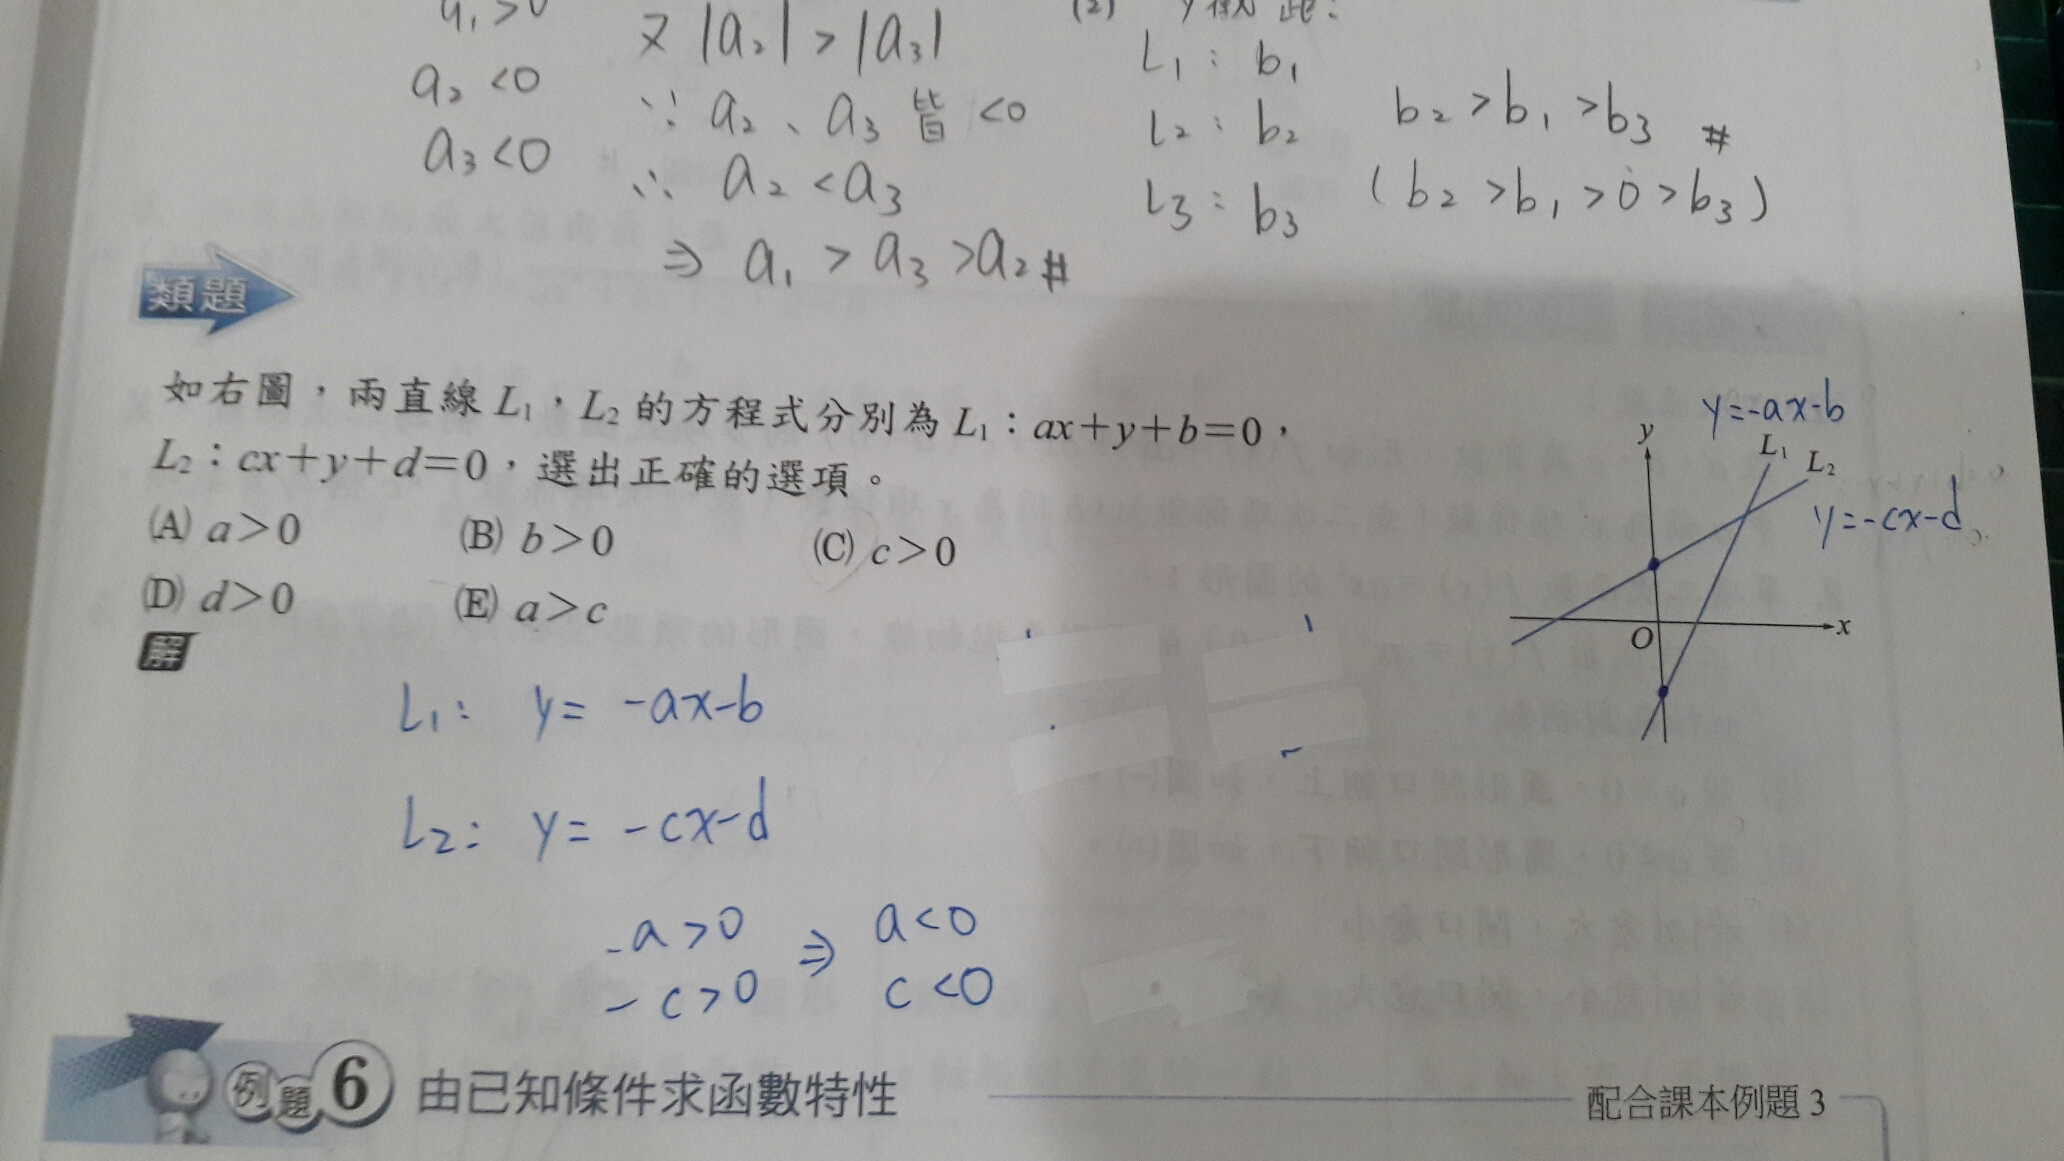 a₁>0
a₂<0
a₃<0
又 |a₂| > |a₃|
∵ a₂、a₃ 皆 <0
∴ a₂ < a₃
⇒ a₁ > a₃ > a₂ #
(2)
L₁ : b₁
L₂ : b₂
L₃ : b₃
b₂ > b₁ > b₃ #
( b₂ > b₁ > 0 > b₃ )
類題
如右圖，兩直線 L₁，L₂ 的方程式分別為 L₁：ax+y+b=0，
L₂：cx+y+d=0，選出正確的選項。
(A) a>0 (B) b>0 (C) c>0
(D) d>0 (E) a>c
y=-ax-b
y
L₁
L₂
y=-cx-d
O
x
解
L₁: y= -ax-b
L₂: y= -cx-d
-a>0 ⇒ a<0
-c>0 c<0
例題 6 由已知條件求函數特性
配合課本例題 3